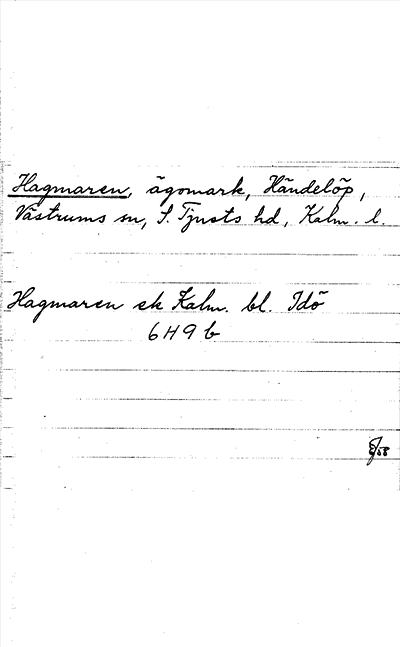 Hagmaren, ägomark, Händelöp,
Västrums sn, S. Tjusts hd, Kalm. l.
Hagmaren ek Kalm. bl. Idö
6H9b